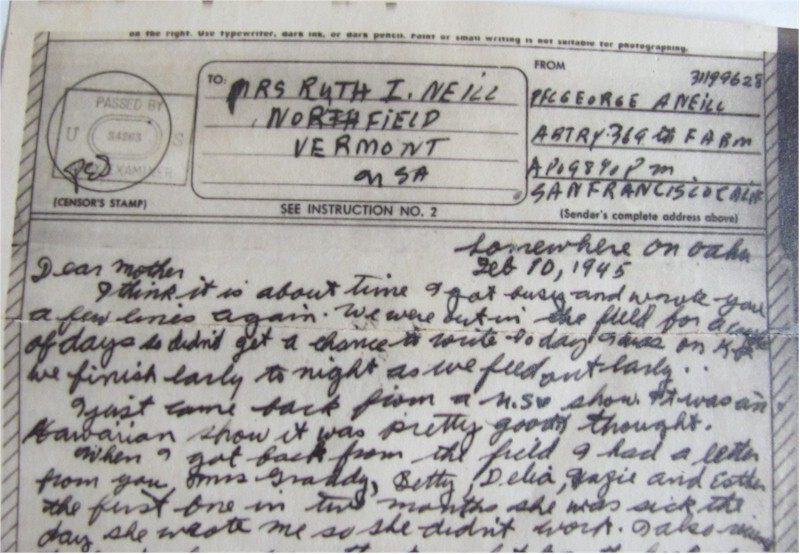 on the right. Use typewriter, dark ink, or dark pencil. Faint or small writing is not suitable for photographing.
TO:
MRS RUTH I. NEILL
NORTHFIELD
VERMONT
USA
FROM
31199628
PFC GEORGE A NEILL
A BTRY. 369 th F A B n
APO 984 % P m.
SAN FRANCISCO CALIF
PASSED BY
U S
EXAMINER
(CENSOR'S STAMP)
SEE INSTRUCTION NO. 2
(Sender's complete address above)
Somewhere on Oahu
Feb 10, 1945
Dear Mother
I think it is about time I got busy and wrote you
a few lines again. We were out in the field for a couple
of days so didn't get a chance to write to day I was on K.P.
we finish early to night as we feed out early..
I just came back from a U.S.O show. It was an
Hawaiian show it was pretty good thought.
When I got back from the field I had a letter
from you, mrs Grandy, Betty, Delia, and Esther
the first one in two months she was sick the
day she wrote me so she didn't work. I also